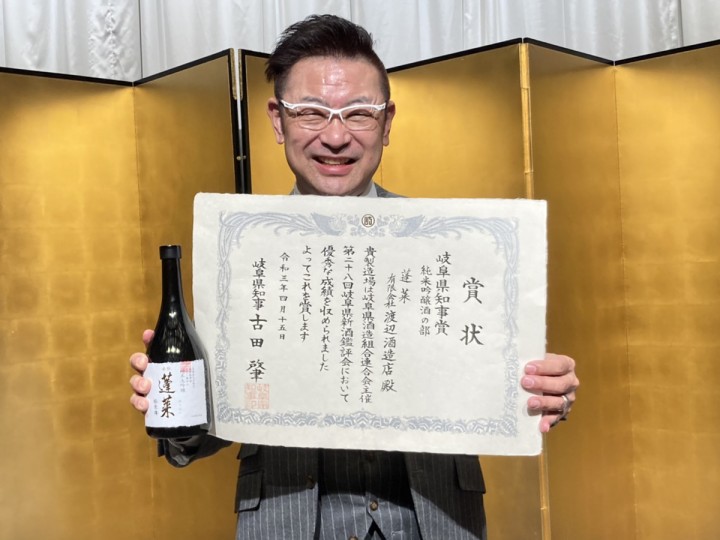 賞状
岐阜県知事賞
純米吟醸酒の部
蓬莱
有限会社渡辺酒造店 殿
貴製造場は岐阜県酒造組合連合会主催
第二十八回岐阜県新酒鑑評会において
優秀な成績を収められました
よってこれを賞します
令和三年四月十五日
岐阜県知事 古田 肇
蓬莱